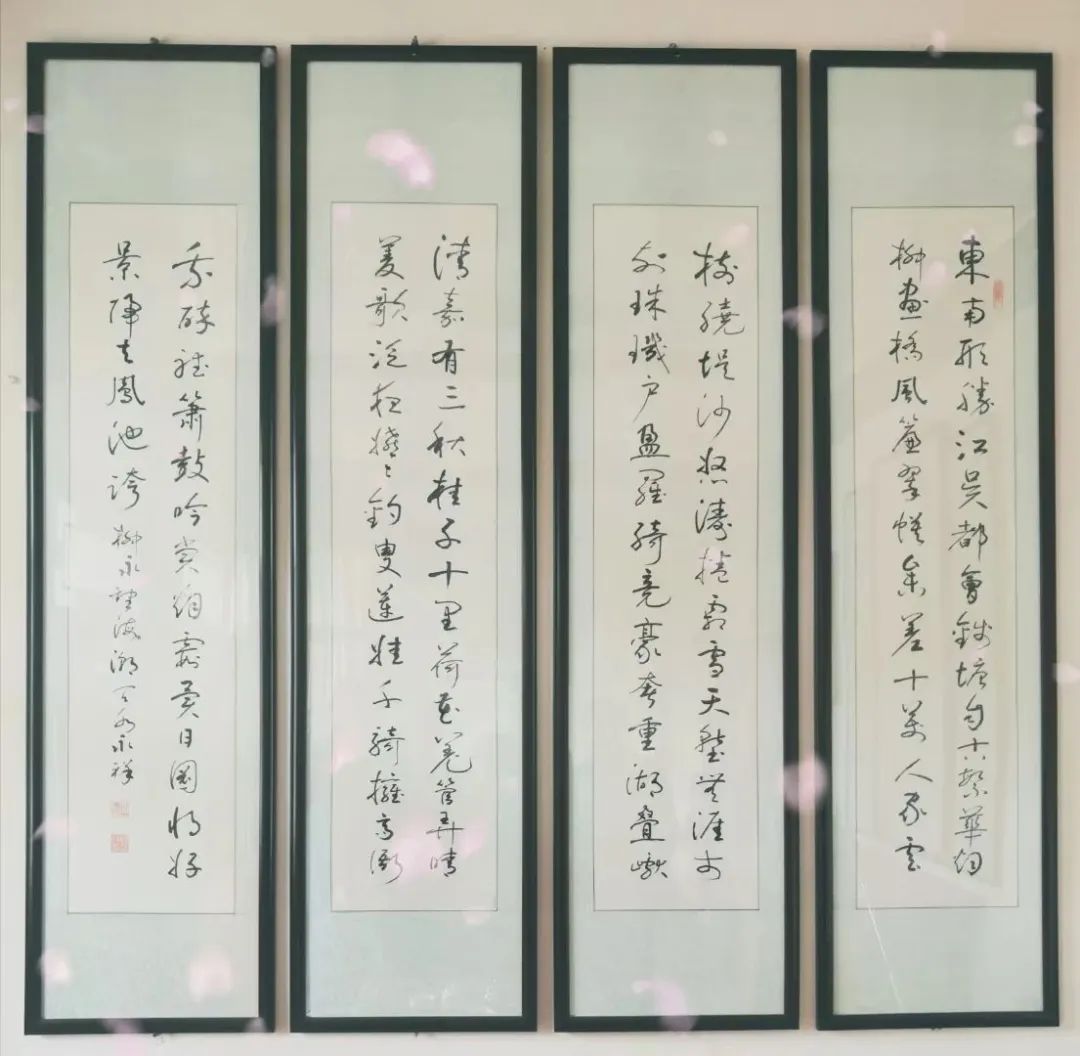 東南形勝江吳都會錢塘自古繁華烟
柳畫橋風簾翠幙參差十萬人家雲
樹繞堤沙怒濤捲霜雪天塹無涯市
列珠璣戶盈羅綺競豪奢重湖疊巘
清嘉有三秋桂子十里荷花羌管弄晴
菱歌泛夜嬉〻釣叟蓮娃千騎擁高衙
乘醉聽簫鼓吟賞烟霞異日圖將好
景歸去鳳池誇 柳永望海潮 永祥